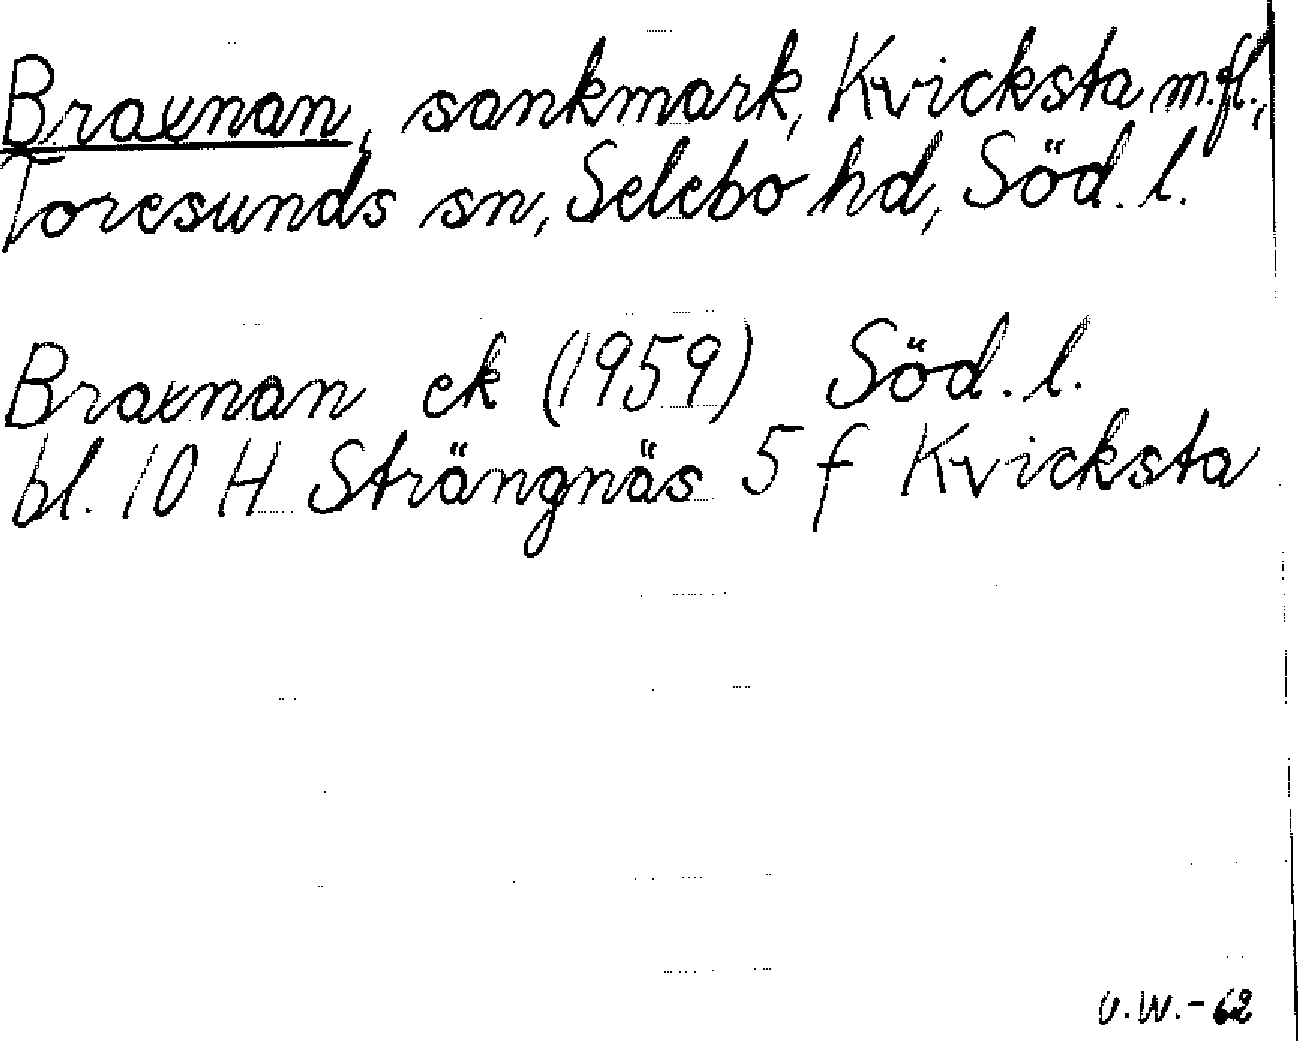 Braxnan, sankmark, Kvicksta m.fl.,
Toresunds sn, Selebo hd, Söd. l.
Braxnan ek (1959) Söd. l.
bl. 10 H Strängnäs 5 f Kvicksta
U.W.-62